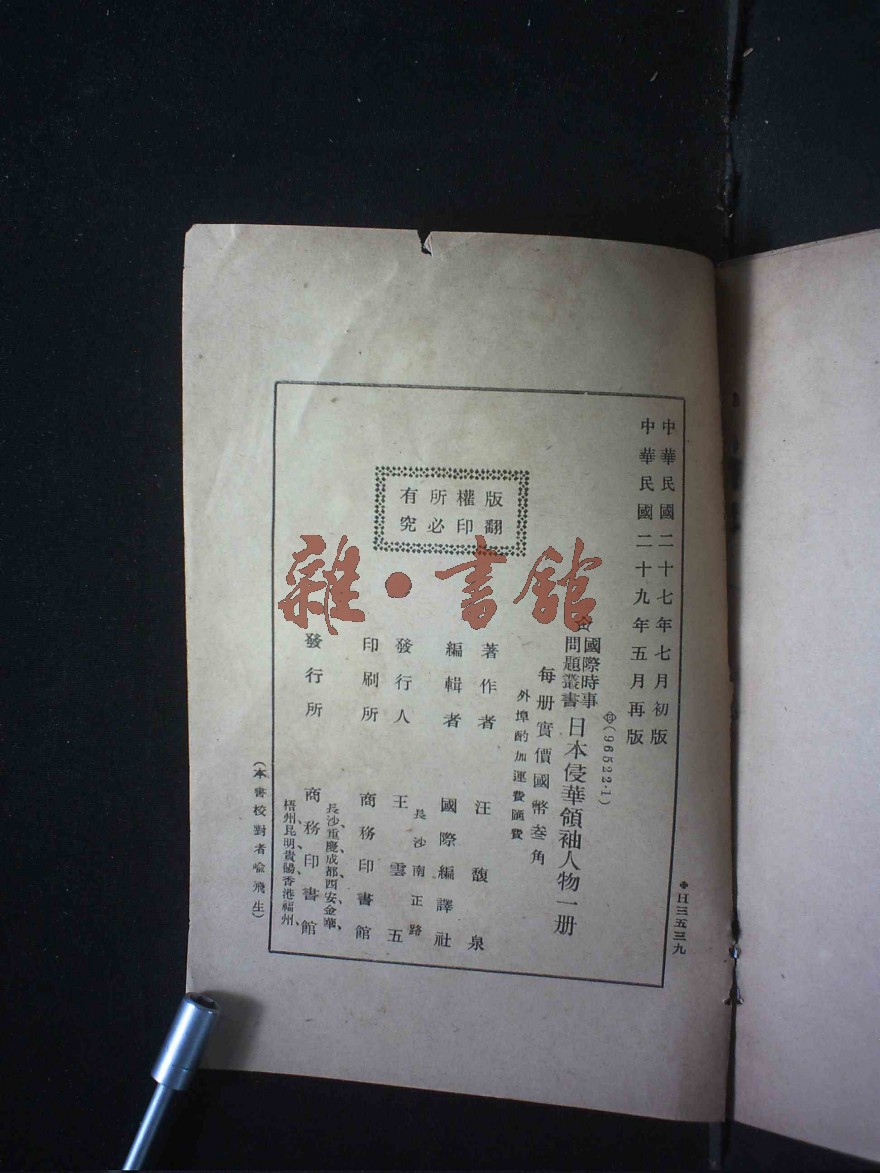 中華民國二十七年七月初版
中華民國二十九年五月再版
(96522·1)
國際時事
問題叢書
日本侵華領袖人物一册
每册實價國幣叁角
外埠酌加運費匯費
著作者 汪馥泉
編輯者 國際編譯社
長沙南正路
發行人 王雲五
印刷所 商務印書館
長沙、重慶、成都、西安、金華、
發行所 商務印書館
梧州、昆明、貴陽、香港、福州、
(本書校對者喩飛生)
版權所有
翻印必究
H三五三九
雜·書館